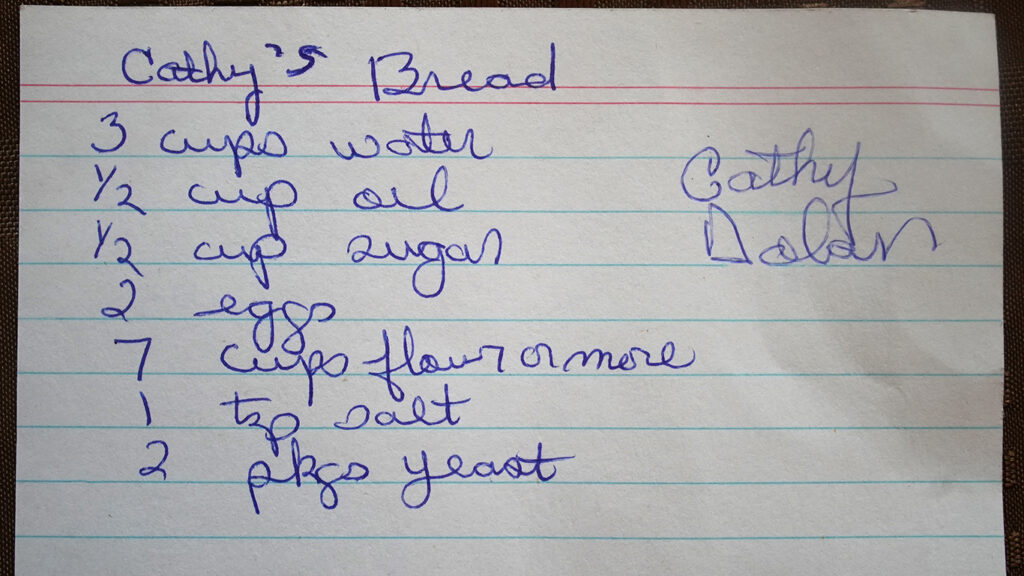 Cathy's Bread
3 cups water
1/2 cup oil
1/2 cup sugar
2 eggs
7 cups flour or more
1 tsp salt
2 pkgs yeast
Cathy
Dolan